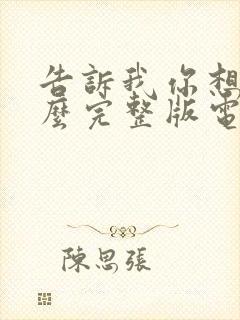 告訴我你想
麼完整版電
陳思張